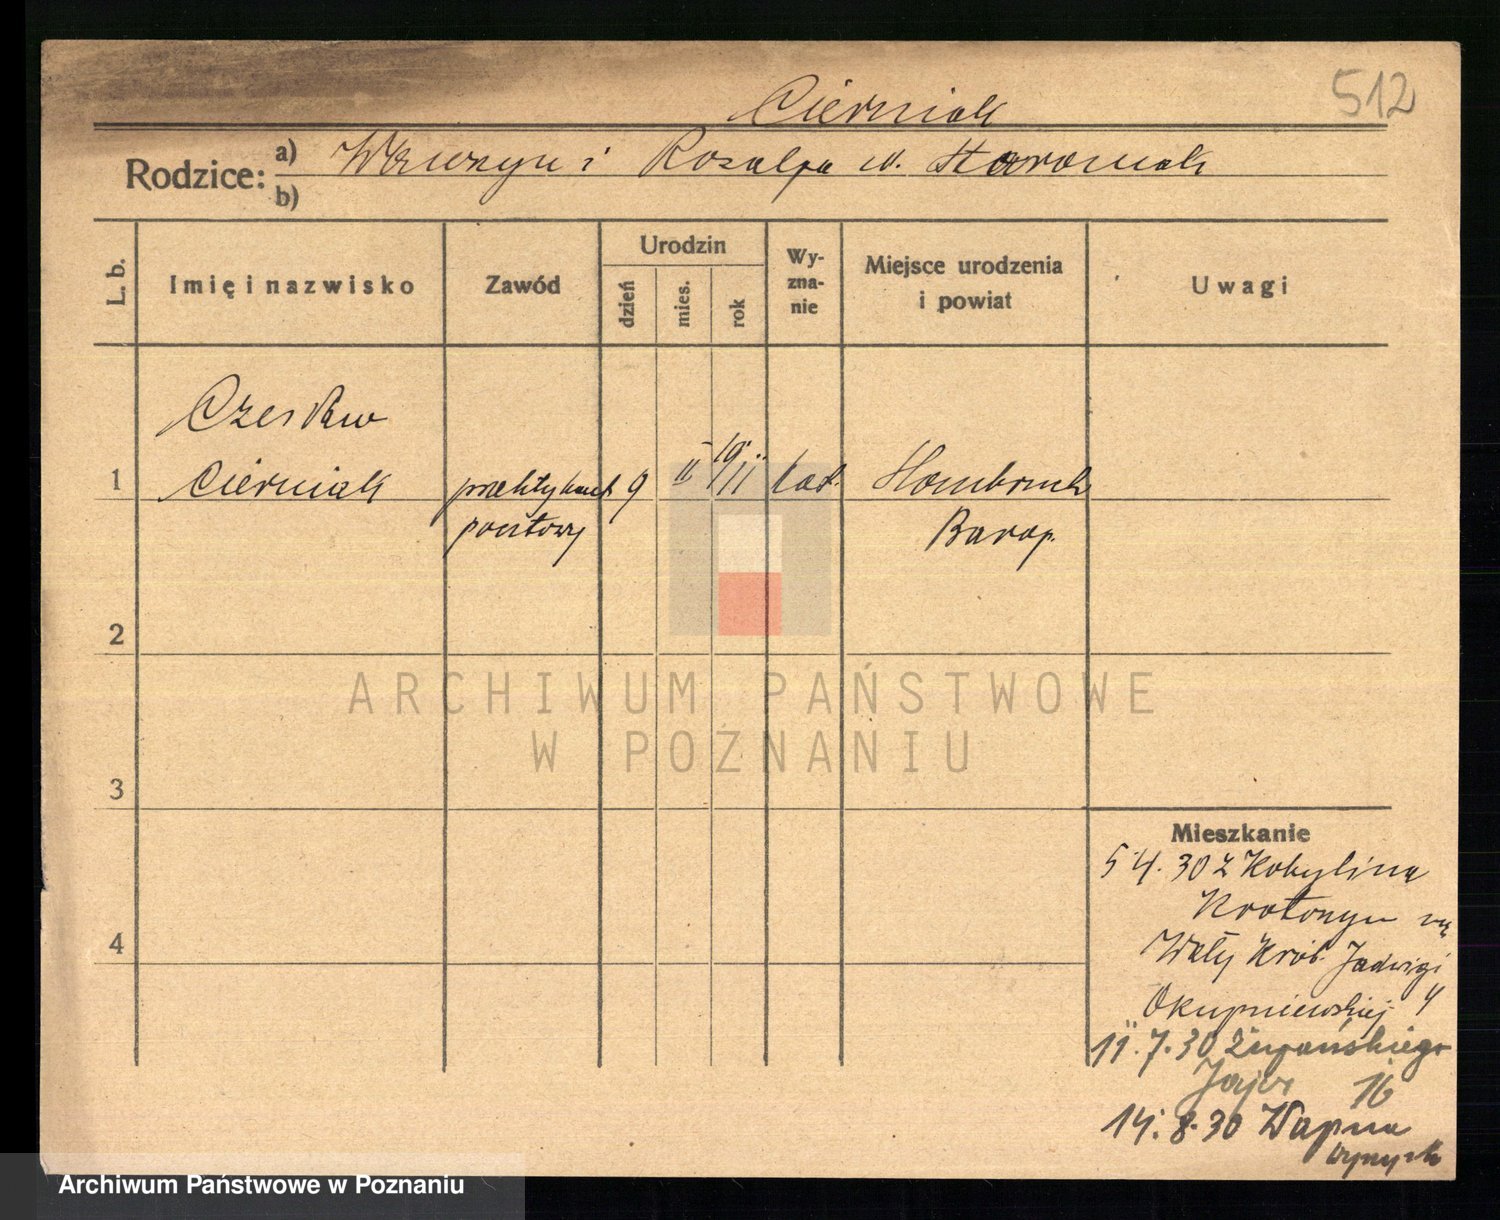 512
Cierniak
Rodzice: a) Wawrzyn i Rozalja u. Staroniak
b)
L. b.
Imię i nazwisko
Zawód
Urodzin
dzień
mies.
rok
Wy-
zna-
nie
Miejsce urodzenia
i powiat
Uwagi
Czesław
1 Cierniak praktykant 9 II 1911 kat. Hombruch
pocztowy Barop.
2
3
4
ARCHIWUM PAŃSTWOWE
W POZNANIU
Mieszkanie
5 4. 30 z Kobylina
Krotoszyn
Wały Król. Jadwigi
Okupniewskiej 4
11. 7. 30 Żupańskiego
16
14. 8. 30 Wapna
Archiwum Państwowe w Poznaniu